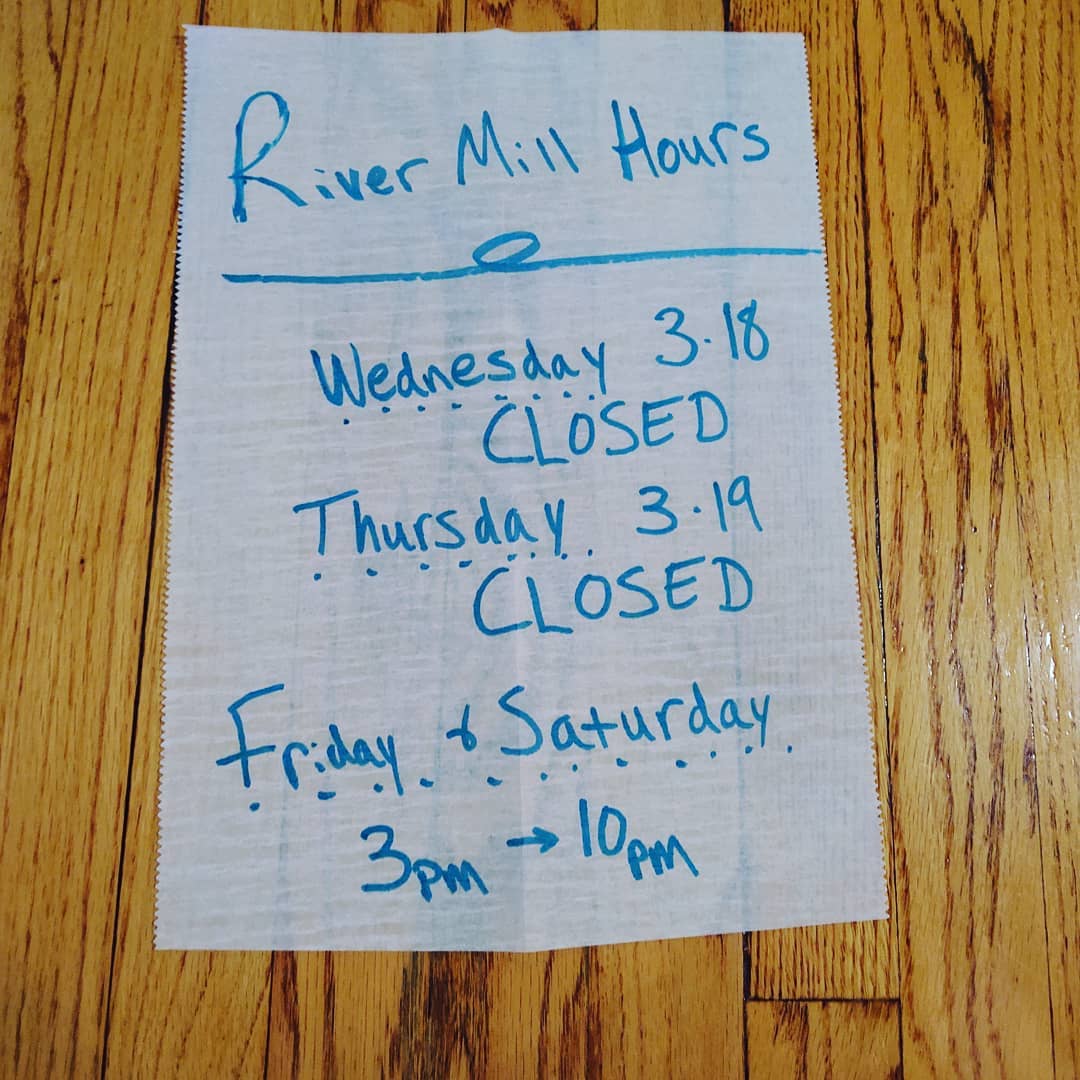 River Mill Hours
Wednesday 3·18
CLOSED
Thursday 3·19
CLOSED
Friday & Saturday
3pm → 10pm